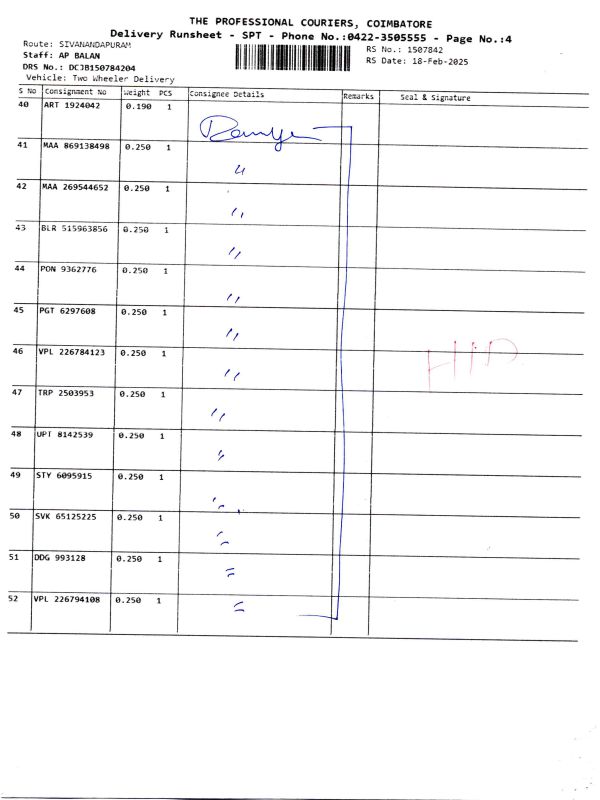 THE PROFESSIONAL COURIERS, COIMBATORE
Delivery Runsheet - SPT - Phone No.:0422-3505555 - Page No.:4
Route: SIVANANDAPURAM
Staff: AP BALAN
DRS No.: DCJB150784204
Vehicle: Two Wheeler Delivery
RS No.: 1507842
RS Date: 18-Feb-2025
S No Consignment No Weight PCS Consignee Details Remarks Seal & Signature
40 ART 1924042 0.190 1
41 MAA 869138498 0.250 1 〃
42 MAA 269544652 0.250 1 〃
43 BLR 515963856 0.250 1 〃
44 PON 9362776 0.250 1 〃
45 PGT 6297608 0.250 1 〃
46 VPL 226784123 0.250 1 〃
47 TRP 2503953 0.250 1 〃
48 UPT 8142539 0.250 1 〃
49 STY 6095915 0.250 1 〃
50 SVK 65125225 0.250 1 〃
51 DDG 993128 0.250 1 〃
52 VPL 226794108 0.250 1 〃